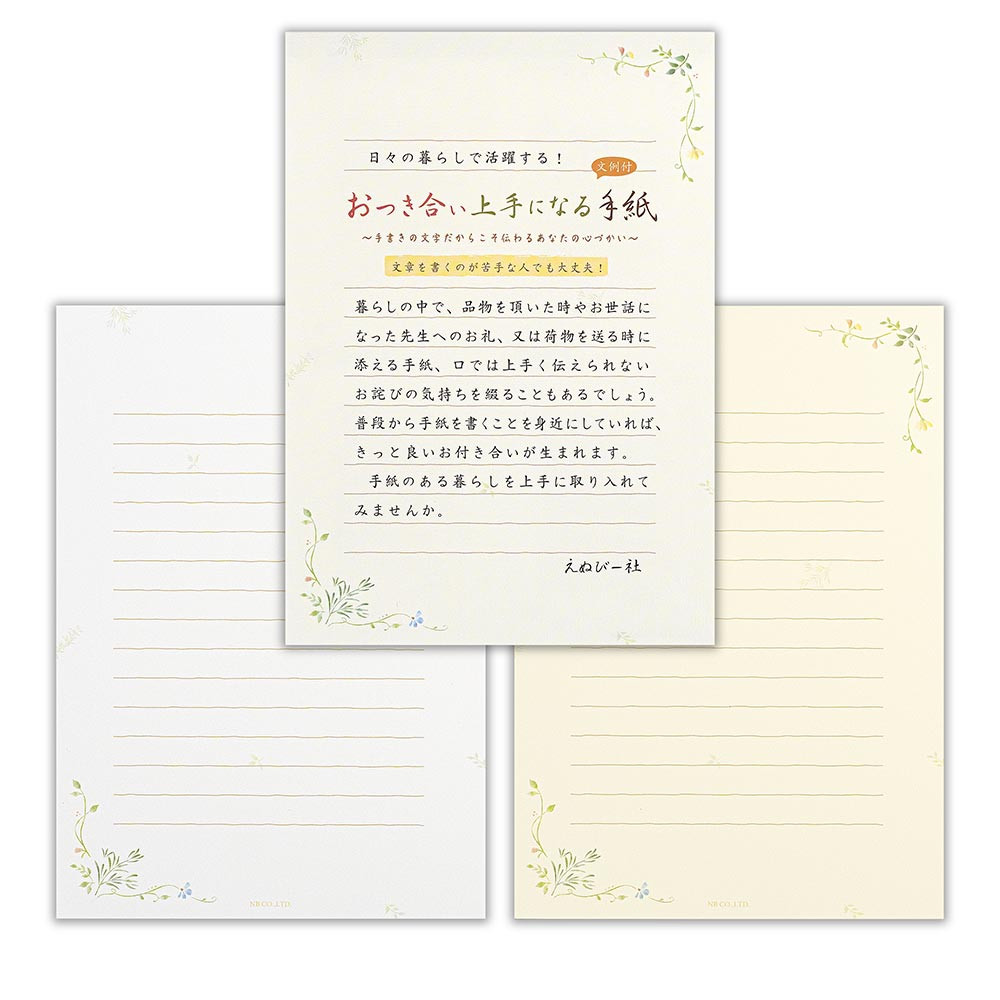 日々の暮らしで活躍する！
文例付
おつき合い上手になる手紙
～手書きの文字だからこそ伝わるあなたの心づかい～
文章を書くのが苦手な人でも大丈夫！
暮らしの中で、品物を頂いた時やお世話に
なった先生へのお礼、又は荷物を送る時に
添える手紙、口では上手く伝えられない
お詫びの気持ちを綴ることもあるでしょう。
普段から手紙を書くことを身近にしていれば、
きっと良いお付き合いが生まれます。
手紙のある暮らしを上手に取り入れて
みませんか。
えぬびー社
NB CO.,LTD.
NB CO.,LTD.